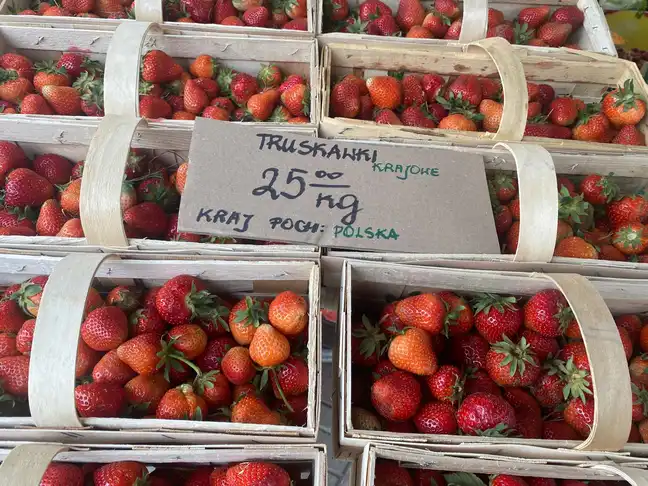 TRUSKAWKI
KRAJOWE
25.00 kg
KRAJ POCH: POLSKA